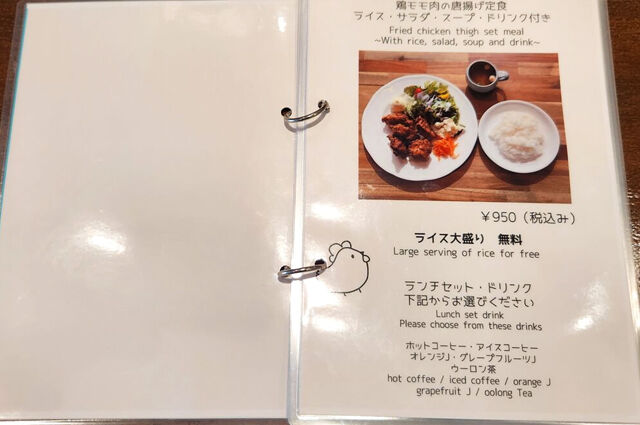 鶏モモ肉の唐揚げ定食
ライス・サラダ・スープ・ドリンク付き
Fried chicken thigh set meal
~With rice, salad, soup and drink~
￥950（税込み）
ライス大盛り 無料
Large serving of rice for free
ランチセット・ドリンク
下記からお選びください
Lunch set drink
Please choose from these drinks
ホットコーヒー・アイスコーヒー
オレンジJ・グレープフルーツJ
ウーロン茶
hot coffee / iced coffee / orange J
grapefruit J / oolong Tea